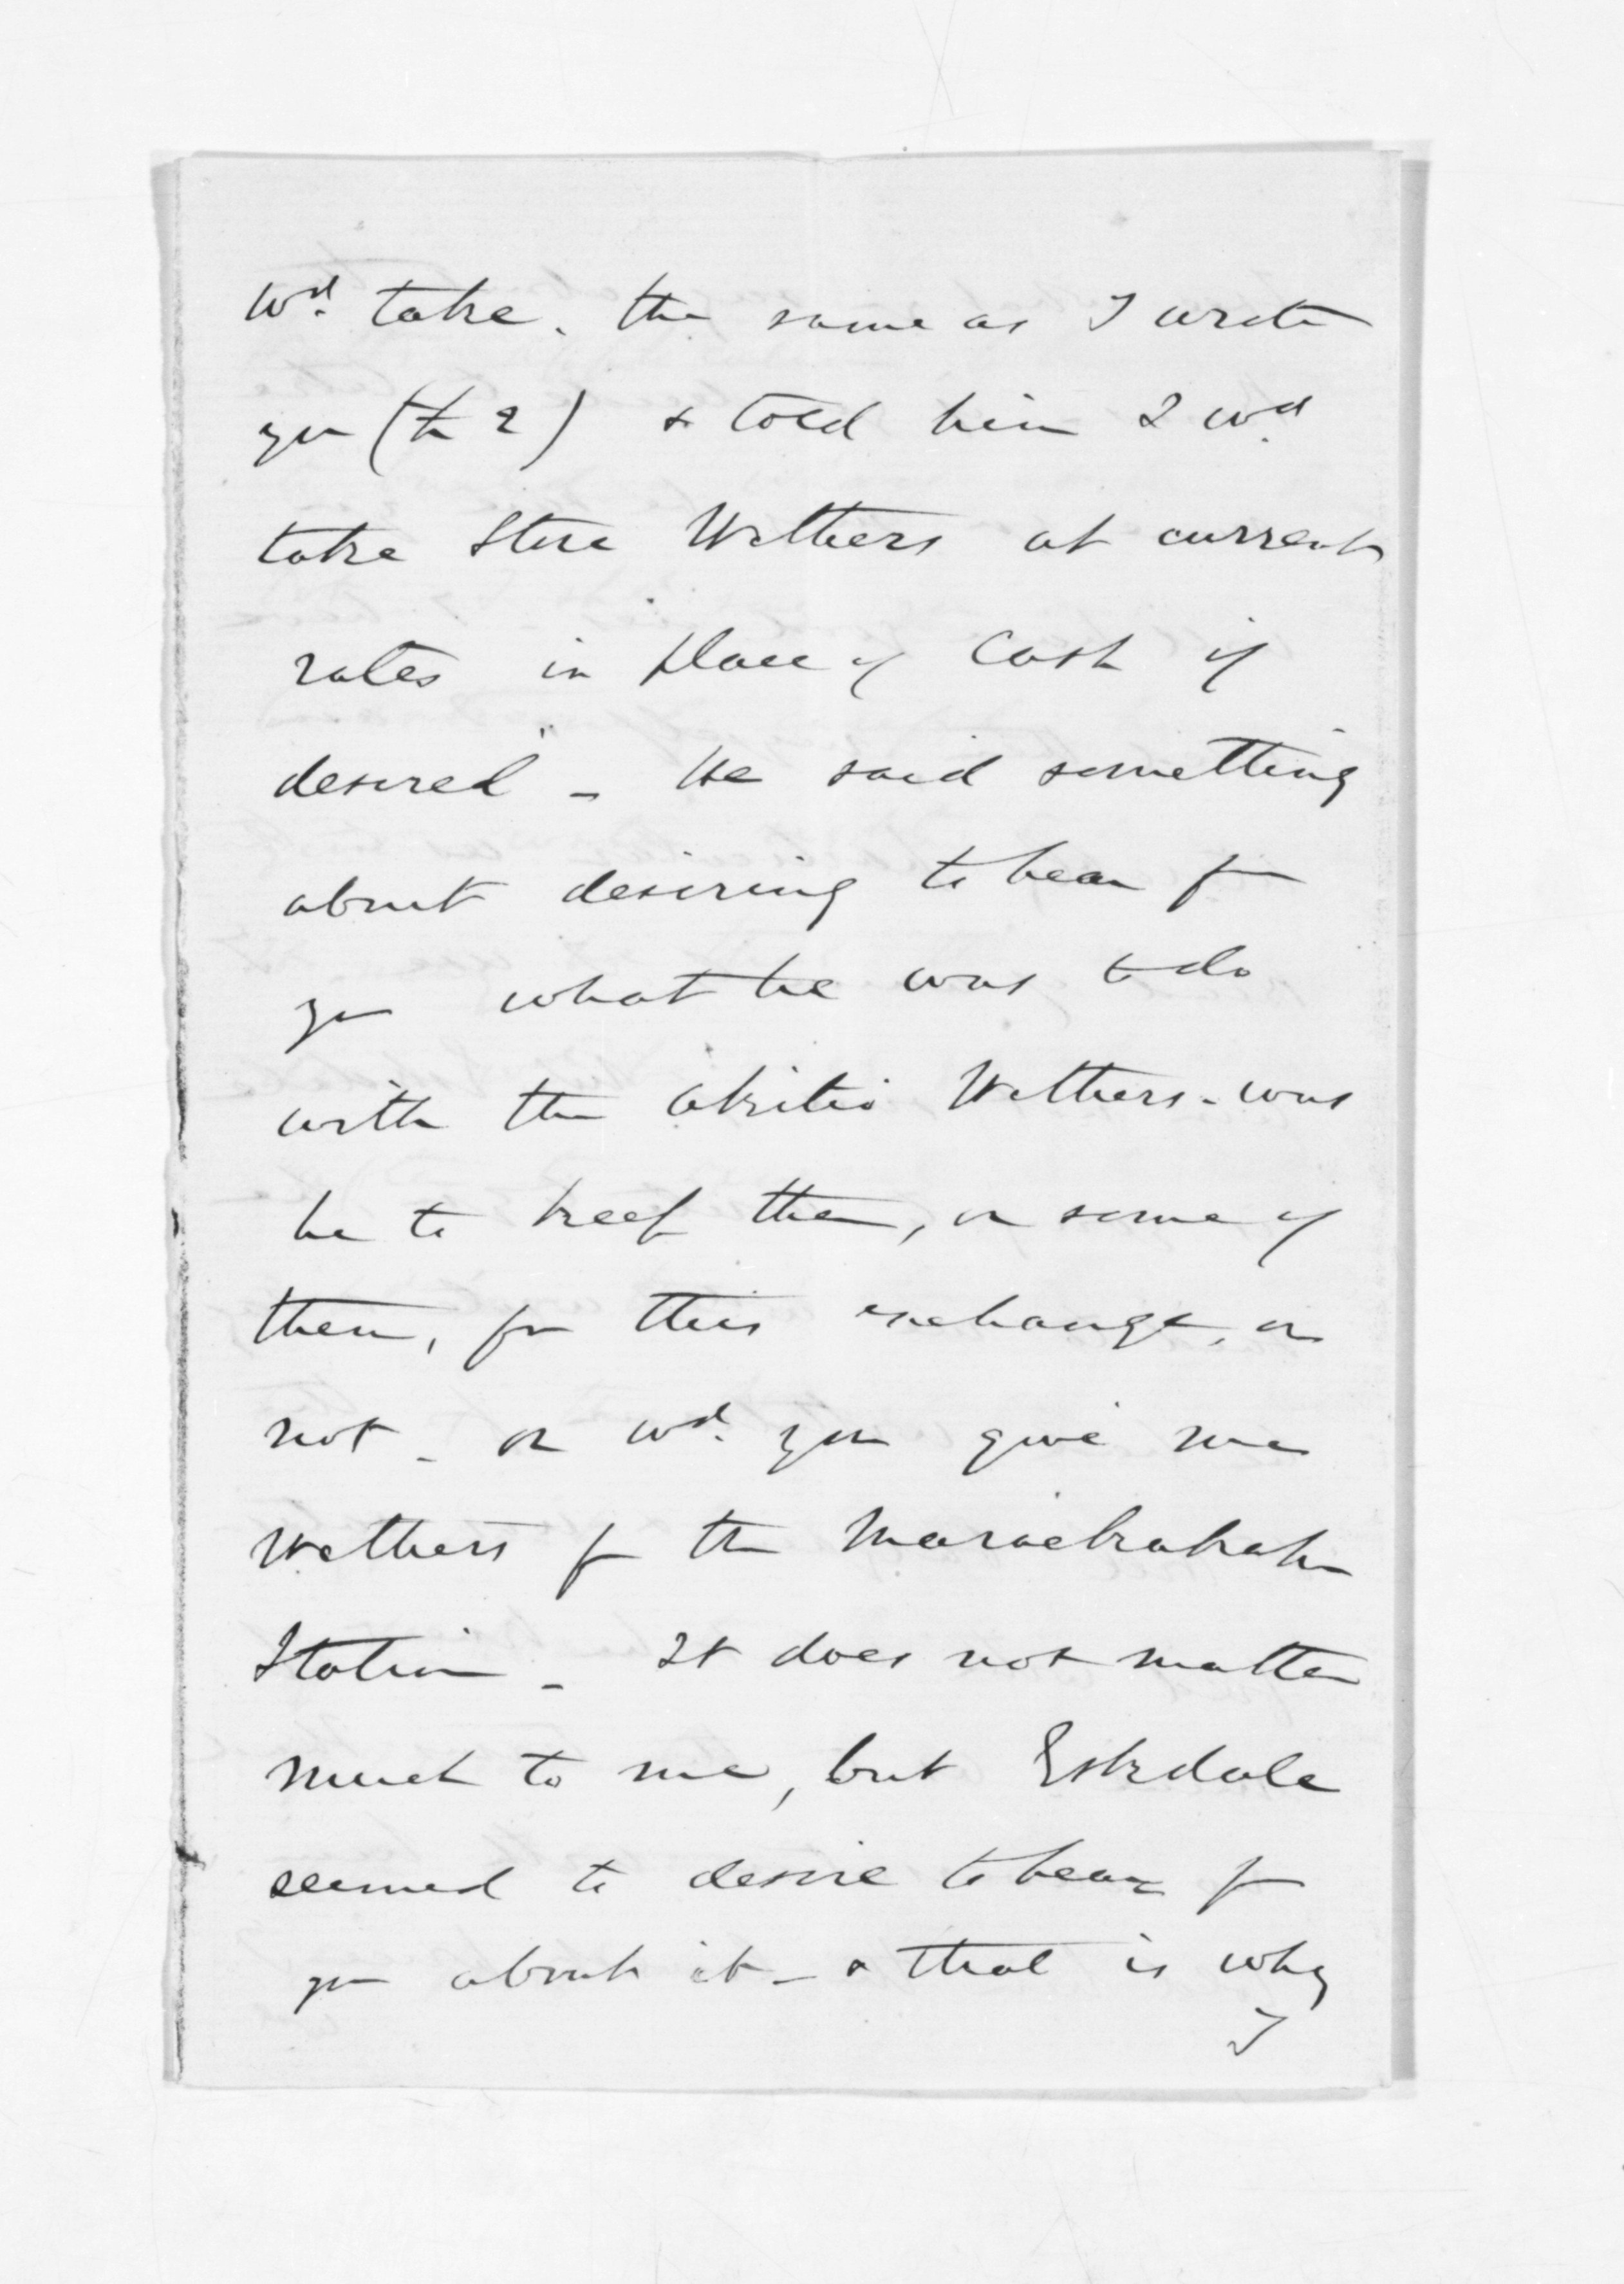 wd. take. the same as I wrote
you (the 2) & told him I wd.
take Store Wethers at current
rates in place of Cash if
desired - He said something
about desiring to hear fm
you what he was to do
with the Akitio Wethers - was
he to keep them, or some of
them, for this exchange, or
not - or wd. you give me
Wethers fm the Maraekakaho
Station - It does not matter
much to me, but Eskdale
seemed to desire to hear fm
you about it - & that is why
I